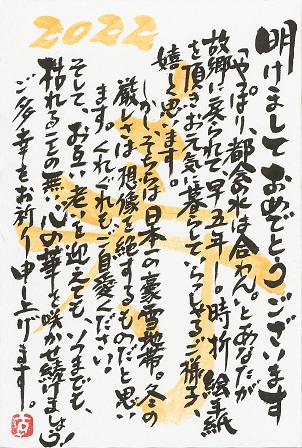 2022
明けましておめでとうございます
「やっぱり、都会の水は合わん。」とあなたが
故郷に戻られて早五年―。時折、絵手紙
を頂きお元気に暮らしていらっしゃるご様子、
嬉しく思います。
しかし、そちらは日本一の豪雪地帯。冬の
厳しさは想像を絶するものだと思い
ます。くれぐれもご自愛ください。
そして、お互い老いを迎えても、いつまでも、
枯れることの無い心の華を咲かせ続けましょう！
ご多幸をお祈り申し上げます。